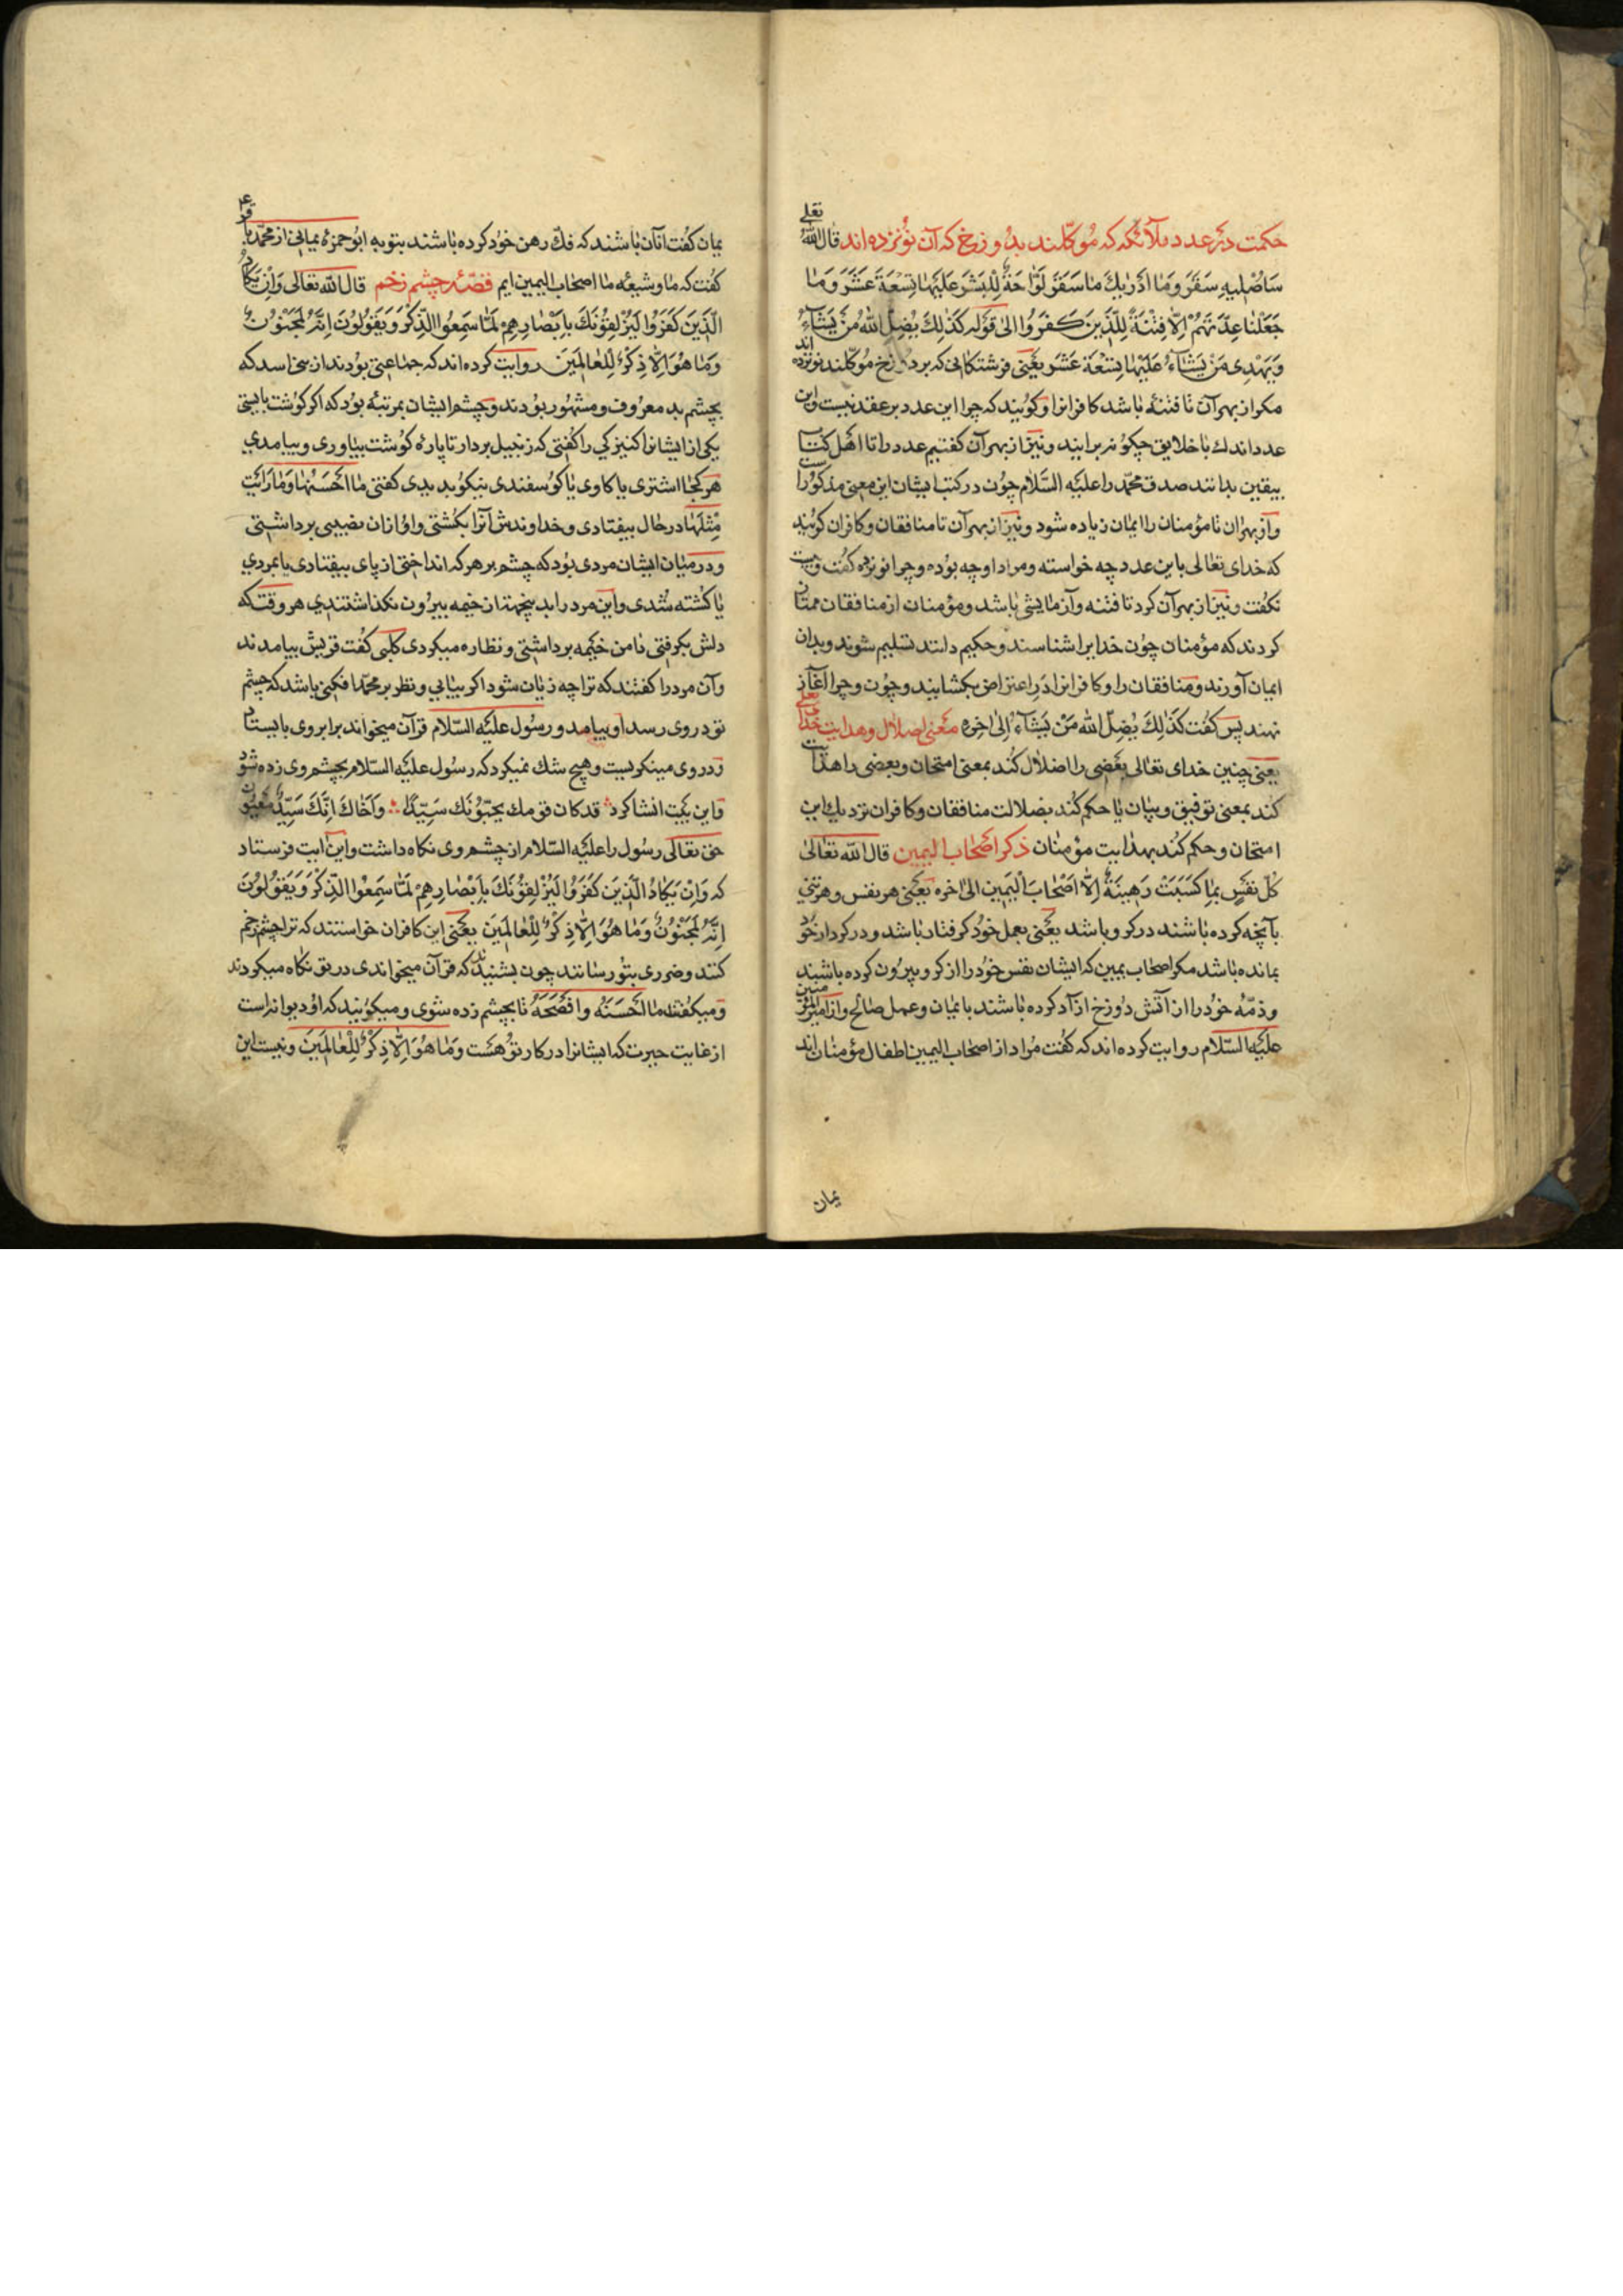 حکمت در عدد ملائکه که موکلند بدوزخ که آن نوزده اند قال الله تعلی
سَاُصْلیهِ سَقَرَ وَمَا اَدْرٰیكَ مَا سَقَرَ لَوَّاحَةٌ لِلْبَشَرِ عَلَیْهَا تِسْعَةَ عَشَرَ وَمَا
جَعَلْنَا عِدَّتَهُمْ اِلَّا فِتْنَةً لِلَّذِینَ کَفَرُوا الیٰ قَوْلِه کَذٰلِكَ یُضِلُّ اللهُ مَنْ یَشَآءُ
وَیَهْدِی مَنْ یَشَآءُ عَلَیْهَا تِسْعَةَ عَشَرَ یعنی فرشتکانی که بر دوزخ موکلند نوزده اند
مکر از بهر آن تا فتنه باشد کافرانرا و کویند که چرا این عدد بر عقد نیست و این
عدد اندك با خلایق چکونه برایند و نیز از بهر آن کفتیم عدد را تا اهل کتاب
بیقین بدانند صدق محمد را علیه السّلام چون در کتب ایشان این معنی مذکور است
و از بهر آن تا مؤمنان را ایمان زیاده شود و نیز از بهر آن تا منافقان و کافران کویند
که خدای تعالی باین عدد چه خواسته و مراد او چه بوده و چرا نوزده کفت و بیست
نکفت و نیز از بهر آن کرد تا فتنه و آزمایشی باشد و مؤمنان از منافقان ممتاز
کردند که مؤمنان چون خدایرا شناسند و حکیم دانند تسلیم شوند و بدان
ایمان آورند و منافقان را و کافرانرا در اعتراض بکشایند و چون و چرا آغاز
نهند پس کفت کَذٰلِكَ یُضِلُّ اللهُ مَنْ یَشَآءُ اِلیٰ اخِرِه معنی اضلال و هدایت خدای تعلی
یعنی چنین خدای تعالی بعضی را اضلال کند بمعنی امتحان و بعضی را هدایت
کند بمعنی توفیق و بیان یا حکم کند بضلالت منافقان و کافران نزدیك این
امتحان و حکم کند بهدایت مؤمنان ذکر اصحاب الیمین قال الله تعالیٰ
کُلُّ نَفْسٍ بِمَا کَسَبَتْ رَهِینَةٌ اِلَّا اَصْحَابَ الْیَمِینِ الیٰ اخره یعنی هر نفس و هر تنی
بآنچه کرده باشند در کرو باشد یعنی بعمل خود کرفتار باشد و در کردار خود
بمانده باشد مکر اصحاب یمین که ایشان نفس خود را از کرو بیرون کرده باشند
و ذمّه خود را از آتش دوزخ ازآد کرده باشند بایمان و عمل صالح و از امیر المؤمنین
علیه السّلام روایت کرده اند که کفت مراد از اصحاب الیمین اطفال مؤمنان اند
یمان
یمان کفت انآن باشند که فكّ رهن خود کرده باشند بتوبه ابو حمزه یمانی از محمد باقر ع
کفت که ما و شیعه ما اصحاب الیمین ایم قصّه چشم زخم قال الله تعالی وَاِنْ یَکَادُ
الَّذِینَ کَفَرُوا لَیُزْلِقُونَكَ بِاَبْصَارِهِمْ لَمَّا سَمِعُوا الذِّکْرَ وَیَقُولُونَ اِنَّهُ لَمَجْنُونٌ
وَمَا هُوَ اِلَّا ذِکْرٌ لِلْعَالَمِینَ روایت کرده اند که جماعتی بودند از بنی اسد که
بچشم بد معروف و مشهور بودند و چشم ایشان بمرتبه بود که اکر کوشت بایستی
یکی از ایشانرا کنیزکی را کفتی که زنبیل بردار تا پاره کوشت بیاوری و بیامدی
هر کجا اشتری یا کاوی یا کوسفندی نیکو بدیدی کفتی ما احْسَنَهَا وَمَا رَاَیْتُ
مِثْلَهَا در حال بیفتادی و خداوندش آنرا بکشتی و او ازان نصیبی برداشتی
و در میان ایشان مردی بود که چشم بر هر که انداختی از پای بیفتادی یا بمردی
یا کشته شدی و این مرد را بدینجهت از خیمه بیرون نکذاشتندی هر وقت که
دلش بکرفتی دامن خیمه برداشتی و نظاره میکردی کلبی کفت قریش بیامدند
و آن مرد را کفتند که ترا چه زیان شود اکر بیایی و نظر بر محمد افکنی باشد که چشم
تو در وی رسد او بیامد و رسول علیه السّلام قرآن میخواند برابر وی بایستاد
و در وی مینکریست و هیچ شك نمیکرد که رسول علیه السّلام بچشم وی زده شود
و این بیت انشا کرد قد کان قومك یحسبونك سیّدًا وَاَخَاكَ اِنَّكَ سَیِّدٌ مَعْیُونٌ
حق تعالی رسول را علیه السّلام از چشم وی نکاه داشت و این ایت فرستاد
که وَاِنْ یَکَادُ الَّذِینَ کَفَرُوا لَیُزْلِقُونَكَ بِاَبْصَارِهِمْ لَمَّا سَمِعُوا الذِّکْرَ وَیَقُولُونَ
اِنَّهُ لَمَجْنُونٌ وَمَا هُوَ اِلَّا ذِکْرٌ لِلْعَالَمِینَ یعنی این کافران خواستند که ترا چشم زخم
کنند و ضرری بتو رسانند چون بشنیدند که قرآن میخواندی در تو نکاه میکردند
و میکفتند ما احْسَنَهُ و افْصَحَهُ تا بچشم زده شوی و میکویند که او دیوانه است
از غایت حیرت که ایشانرا در کار تو هست وَمَا هُوَ اِلَّا ذِکْرٌ لِلْعَالَمِینَ و نیست این